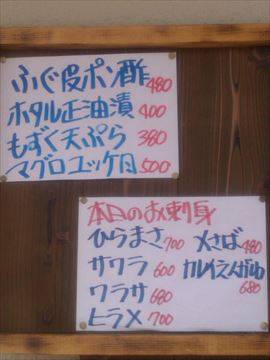 ふぐ皮ポン酢 480
ホタル正油漬 400
もずく天ぷら 380
マグロユッケ丼 500
本日のお刺身
ひらまさ 700
サワラ 600
ワラサ 680
ヒラメ 700
〆さば 480
カレイえんがわ 680